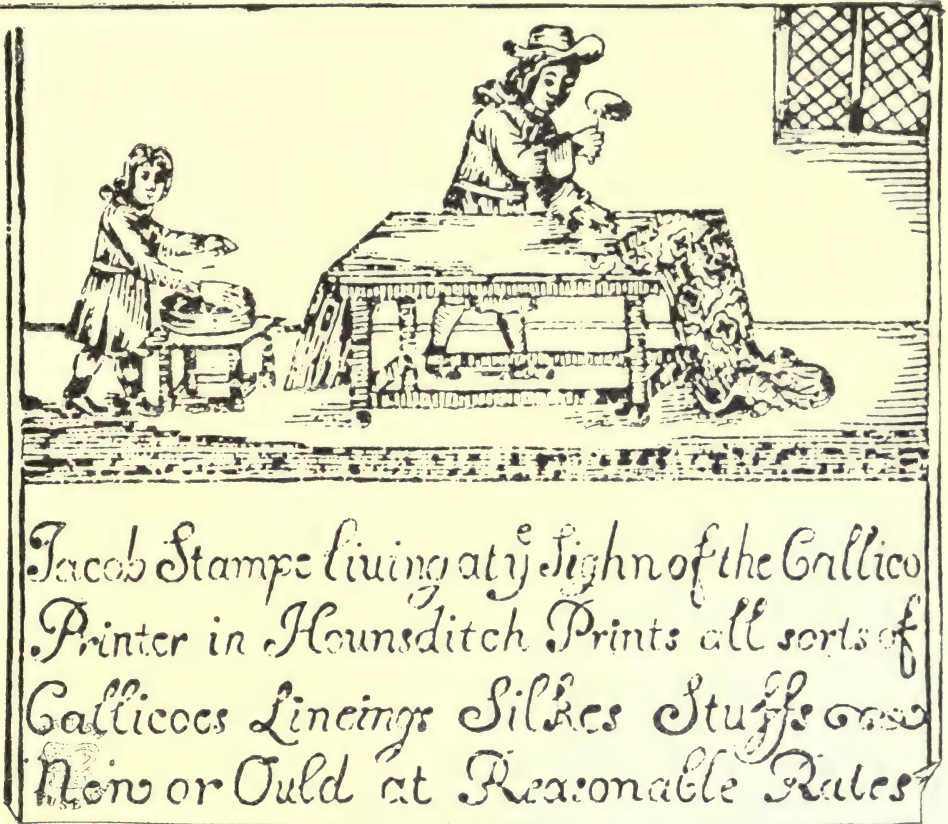 Jacob Stampe liuing at yͤ Sighn of the Callico
Printer in Hounsditch Prints all sorts of
Callicoes Lineings Silkes Stuffs
New or Ould at Reasonable Rates